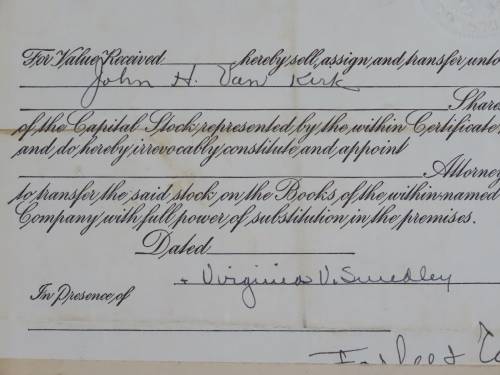 For Value Received hereby sell, assign and transfer unto
John H. Van Kirk
Shares
of the Capital Stock represented by the within Certificate,
and do hereby irrevocably constitute and appoint
Attorney
to transfer the said stock on the Books of the within-named
Company with full power of substitution in the premises.
Dated
Virginia V. Smedley
In Presence of